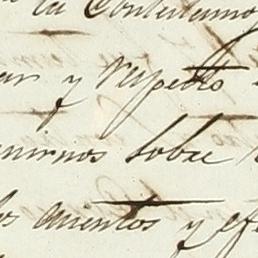 la Contestamo
ar y respecto
enirnos sobre
los asientos y ef